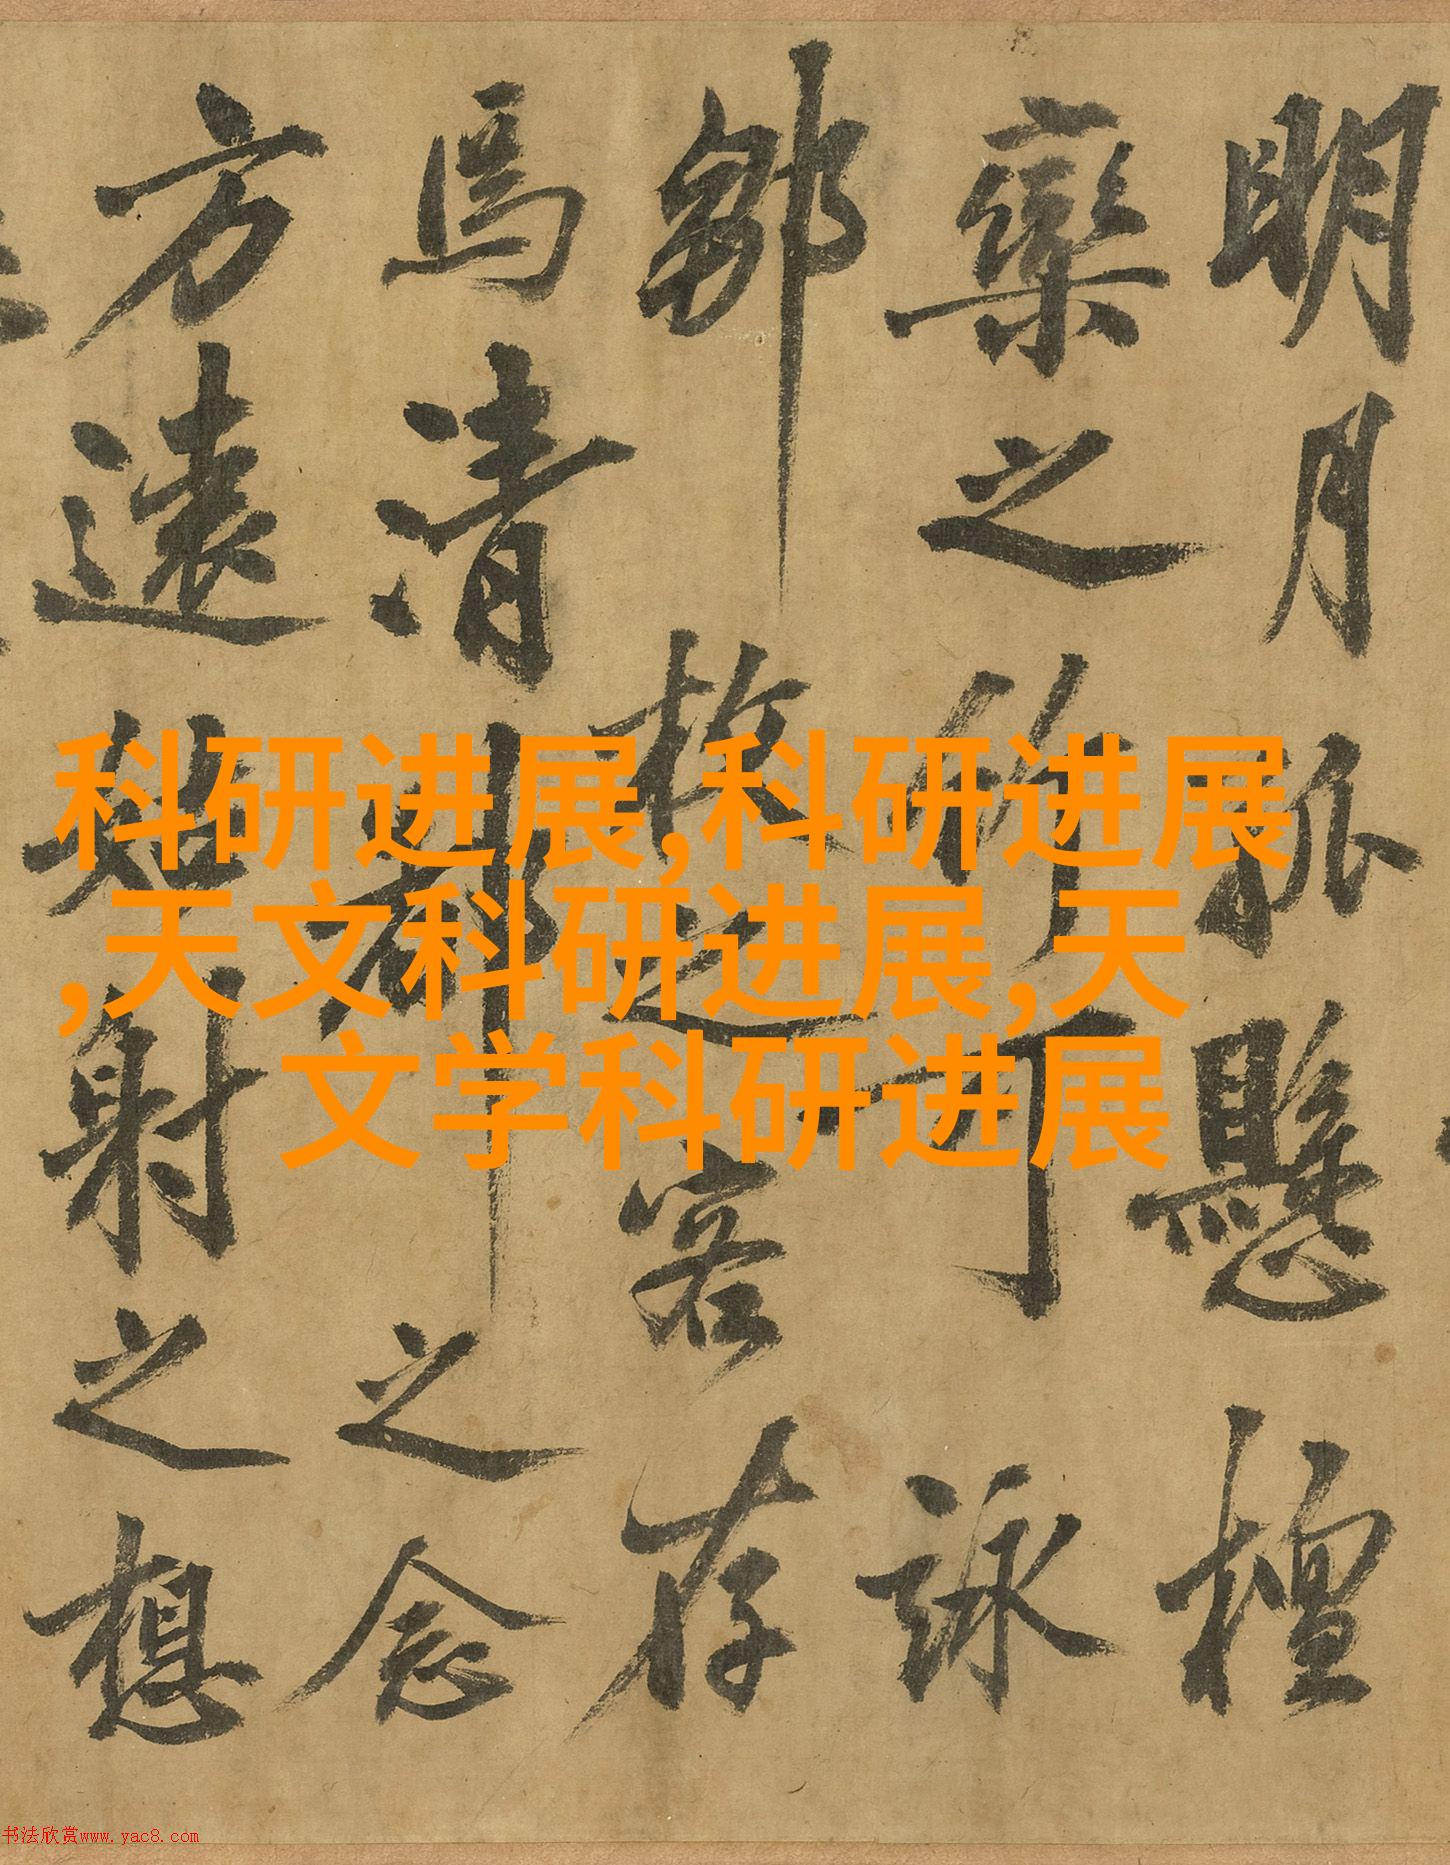 明月孤懸檀
欒之竹可詠
鄒枚之客存
焉清都之念
方遠姑射之想
科研进展,科研进展
,天文科研进展,天
文学科研进展
书法欣赏www.yac8.com